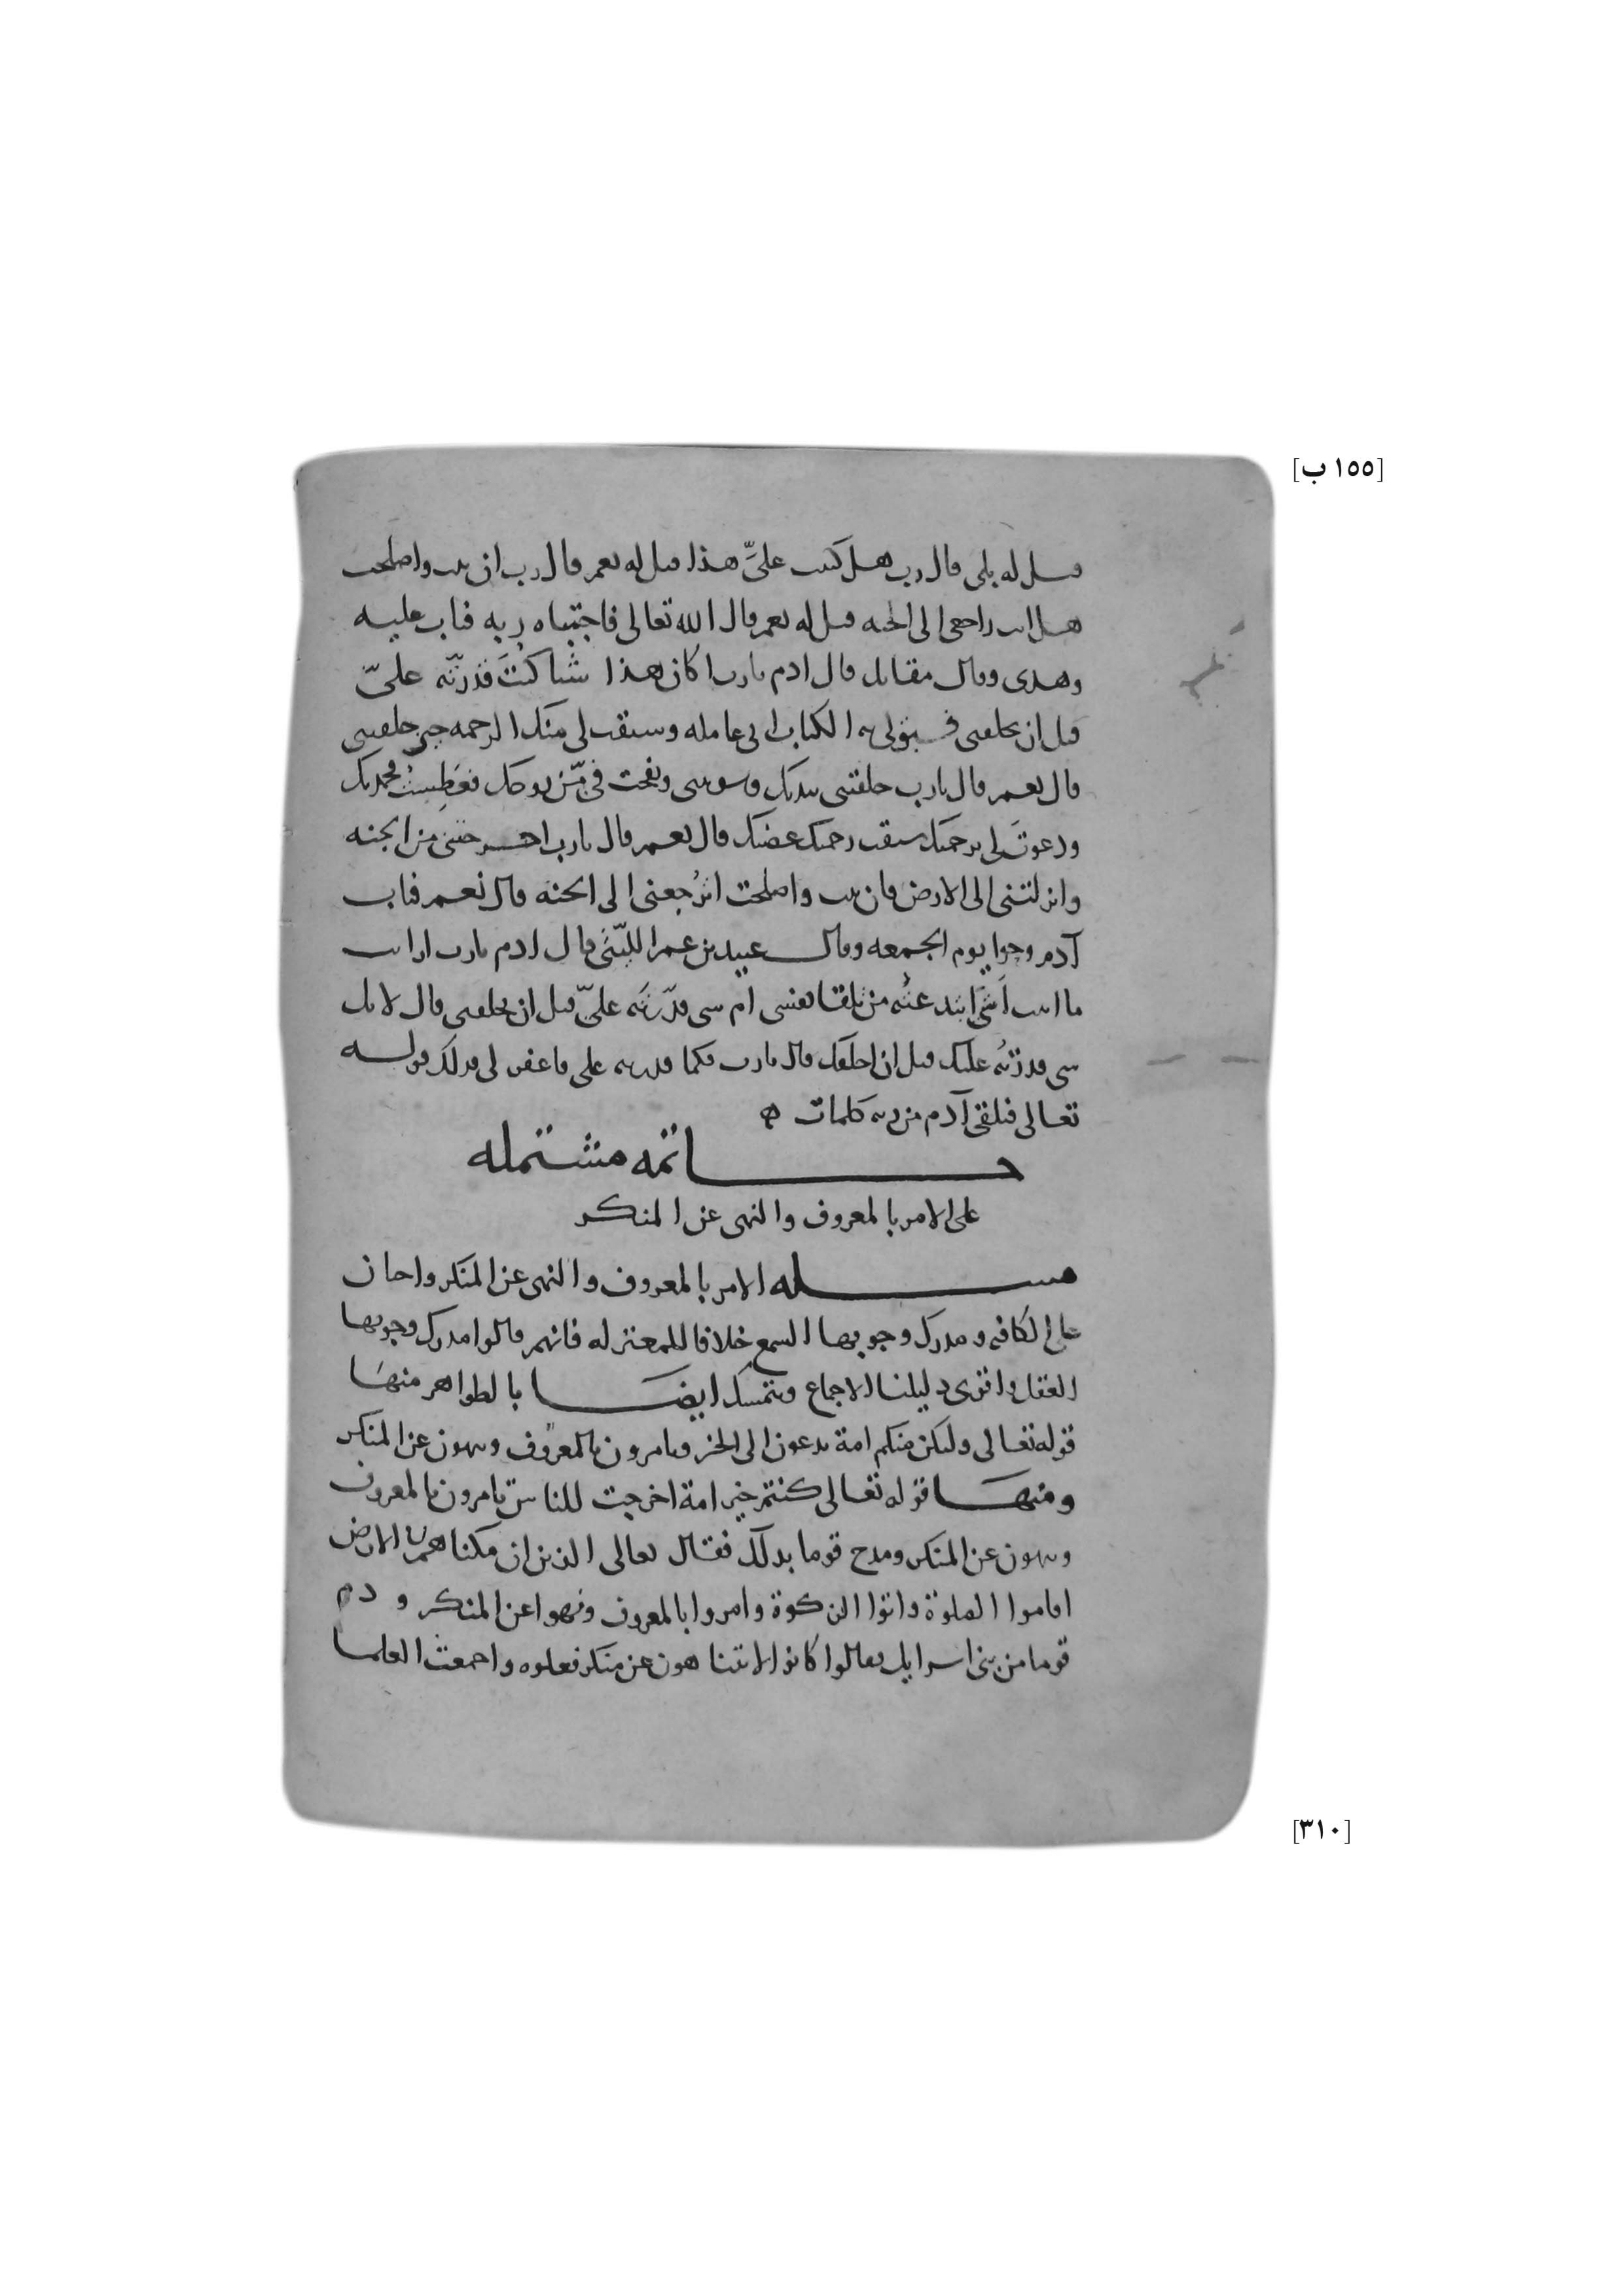 [١٥٥ ب]
قيل له بلى قال رب هل كتبت عليَّ هذا قيل له نعم قال رب ان تبت واصلحت
هل انت راجعي الى الجنه قيل له نعم قال الله تعالى فاجتباه ربه فتاب عليه
وهدى وقال مقاتل قال ادم يارب اكان هذا شيا كُنتَ قدرتَه عليّ
قبل ان تخلقني فسبق لي به الكتاب اني عامله وسبقت لي منك الرحمه حين خلقتني
قال نعم قال يارب خلقتني بيدك وسويتني ونفخت فيّ من روحك فعَطِستُ فحمدتك
ودعوتَ لي برحمتك سبقت رحمتك غضبك قال نعم قال يارب اخرجتني من الجنه
وانزلتني الى الارض فان تبت واصلحت اتُرجعني الى الجنه قال نعم فتاب
آدم وحوا يوم الجمعه وقال عبيد بن عمير الليثي قال ادم يارب ارايت
ما اتيت اَشَيٌ ابتدعتُه من تلقا نفسي ام شي قدّرتَه عليّ قبل ان تخلقني قال لا بل
شي قدرتُه عليك قبل ان اخلقك قال يارب فكما قدرته علي فاغفر لي فذلك قوله
تعالى فتلقى آدم من ربه كلمات ه
خاتمه مشتمله
على الامر بالمعروف والنهى عن المنكر
مسله الامر بالمعروف والنهى عن المنكر واجبان
على الكافه ومدرك وجوبهما السمع خلافا للمعتزله فانهم قالوا مدرك وجوبهما
العقل واقوى دليلنا الاجماع ونتمسك ايضا بالظواهر منهَا
قوله تعالى ولتكن منكم امة يدعون الى الخير ويامرون بالمعروف وينهون عن المنكر
ومنهَا قوله تعالى كنتم خير امة اخرجت للناس تامرون بالمعروف
وتنهون عن المنكر ومدح قوما بذلك فقال تعالى الذين ان مكناهم في الارض
اقاموا الصلوة واتوا الزكوة وامروا بالمعروف ونهوا عن المنكر وذم
قوما من بني اسرايل فقال كانوا لا يتناهون عن منكر فعلوه واجمعت العلما
[٣١٠]